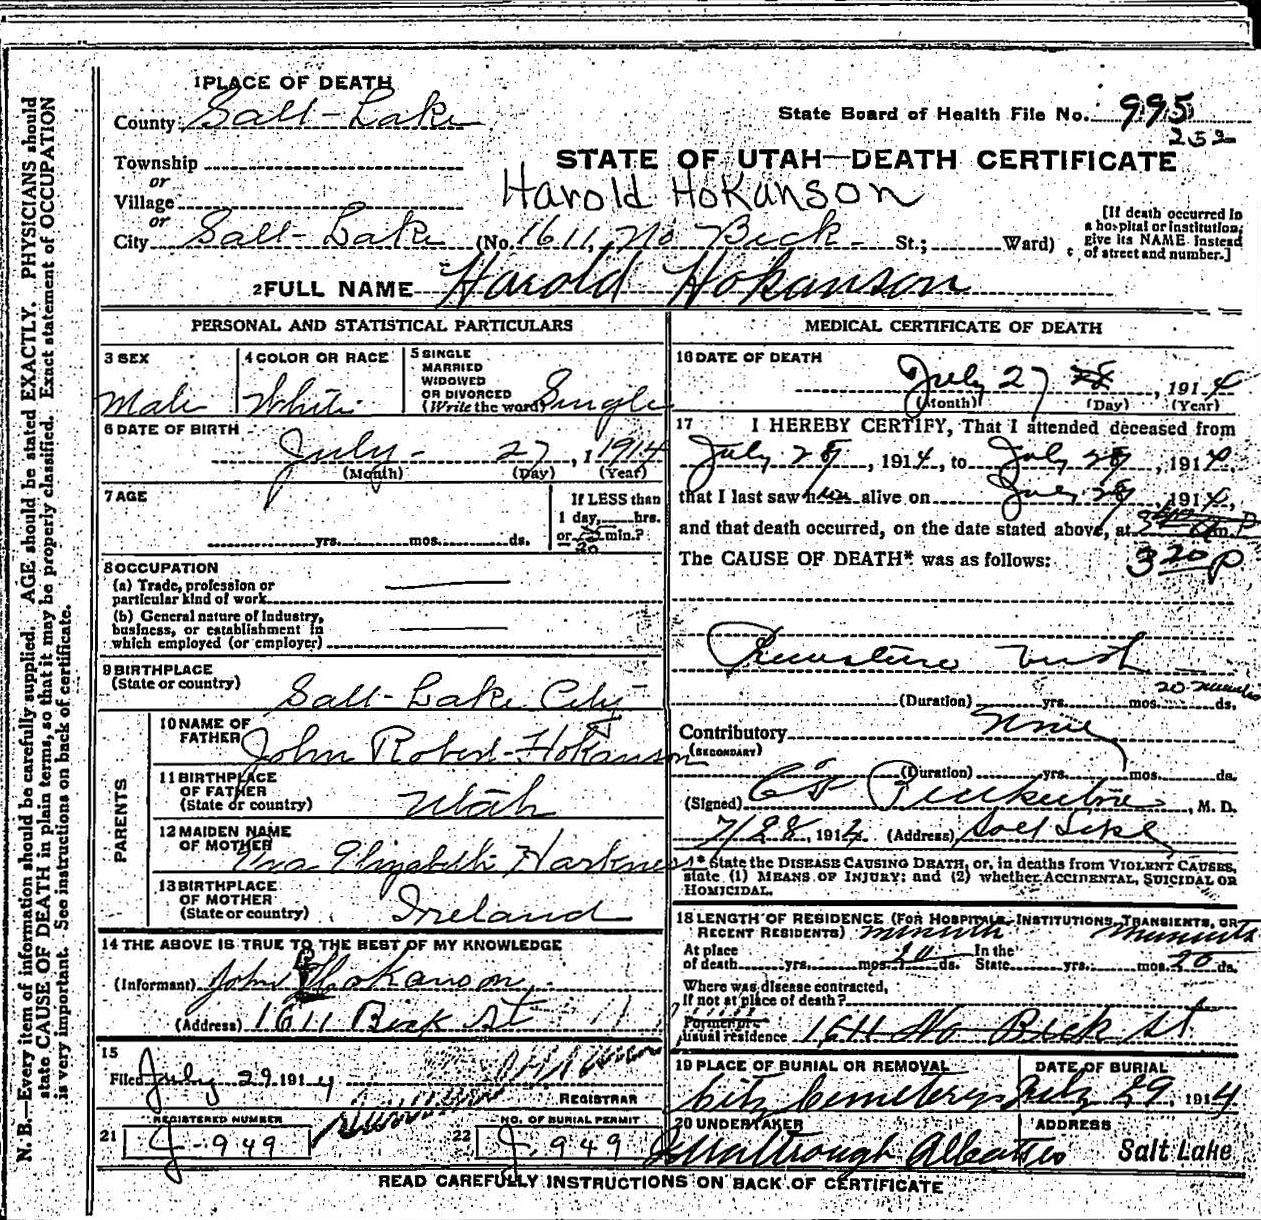 1 PLACE OF DEATH
County Salt Lake
State Board of Health File No. 995
252
Township
or
Village
or
STATE OF UTAH—DEATH CERTIFICATE
Harold Hokanson
City Salt Lake (No. 1611, No Beck St.; Ward)
[If death occurred in a hospital or institution, give its NAME instead of street and number.]
2 FULL NAME Harold Hokanson
PERSONAL AND STATISTICAL PARTICULARS
3 SEX
Male
4 COLOR OR RACE
White
5 SINGLE
MARRIED
WIDOWED
OR DIVORCED
(Write the word) Single
6 DATE OF BIRTH
July 27, 1 1914
(Month) (Day) (Year)
7 AGE
yrs. mos. ds.
If LESS than
1 day, hrs.
or min.?
20
8 OCCUPATION
(a) Trade, profession or
particular kind of work
(b) General nature of industry,
business, or establishment in
which employed (or employer)
9 BIRTHPLACE
(State or country)
Salt Lake City
PARENTS
10 NAME OF
FATHER John Robert Hokanson
11 BIRTHPLACE
OF FATHER
(State or country) Utah
12 MAIDEN NAME
OF MOTHER Elizabeth Harkness
13 BIRTHPLACE
OF MOTHER
(State or country) Ireland
14 THE ABOVE IS TRUE TO THE BEST OF MY KNOWLEDGE
(Informant) John Hokanson
(Address) 1611 Beck St
15
Filed July 29 1914
REGISTRAR
REGISTERED NUMBER
21 J-949
NO. OF BURIAL PERMIT
22 J 949
MEDICAL CERTIFICATE OF DEATH
16 DATE OF DEATH
July 27 28, 1914
(Month) (Day) (Year)
17 I HEREBY CERTIFY, That I attended deceased from
July, 1914, to July, 1914,
that I last saw h alive on July, 1914,
and that death occurred, on the date stated above, at m.
The CAUSE OF DEATH* was as follows: 3 20 P
Premature birth
20 minutes
(Duration) yrs. mos. ds.
Contributory None
(SECONDARY)
(Duration) yrs. mos. ds.
(Signed) M. D.
7/28, 1914 (Address) Salt Lake
* State the DISEASE CAUSING DEATH, or, in deaths from VIOLENT CAUSES,
state (1) MEANS OF INJURY; and (2) whether ACCIDENTAL, SUICIDAL OR
HOMICIDAL.
18 LENGTH OF RESIDENCE (FOR HOSPITALS, INSTITUTIONS, TRANSIENTS, OR
RECENT RESIDENTS)
At place
of death yrs. mos. 20 ds. In the
State yrs. mos. 20 ds.
Where was disease contracted,
if not at place of death?
Former or
usual residence 1611 No Beck St
19 PLACE OF BURIAL OR REMOVAL
City Cemetery
DATE OF BURIAL
July 29, 1914
20 UNDERTAKER
ADDRESS
Salt Lake
READ CAREFULLY INSTRUCTIONS ON BACK OF CERTIFICATE
N. B.—Every item of information should be carefully supplied. AGE should be stated EXACTLY. PHYSICIANS should
state CAUSE OF DEATH in plain terms, so that it may be properly classified. Exact statement of OCCUPATION
is very important. See instructions on back of certificate.